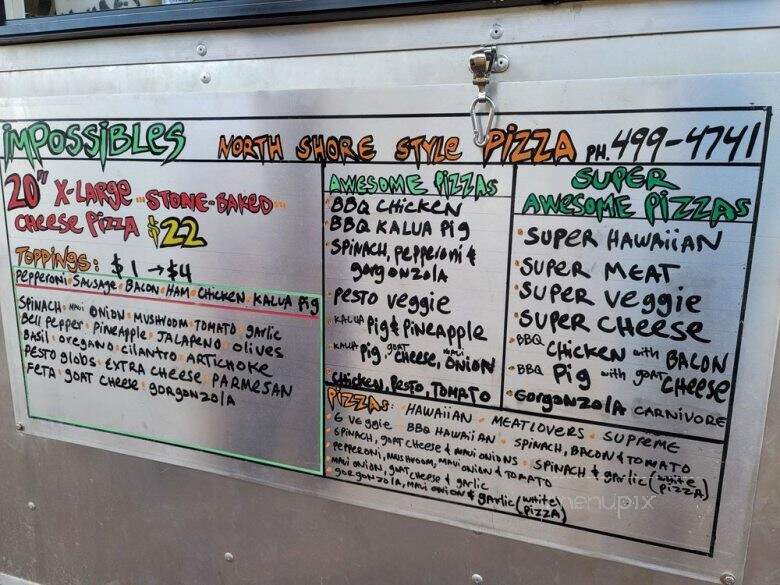 IMPOSSIBLES NORTH SHORE STYLE PIZZA PH. 499-4741
20" X-LARGE STONE-BAKED
CHEESE PIZZA $22
TOPPINGS: $1 → $4
PEPPERONI SAUSAGE BACON HAM CHICKEN KALUA PIG
SPINACH MAUI ONION MUSHROOM TOMATO GARLIC
BELL PEPPER PINEAPPLE JALAPENO OLIVES
BASIL OREGANO CILANTRO ARTICHOKE
PESTO GLOBS EXTRA CHEESE PARMESAN
FETA GOAT CHEESE GORGONZOLA
AWESOME PIZZAS
BBQ CHICKEN
BBQ KALUA PIG
SPINACH, PEPPERONI &
GORGONZOLA
PESTO VEGGIE
KALUA PIG & PINEAPPLE
KALUA PIG, GOAT CHEESE, MAUI ONION
CHICKEN, PESTO, TOMATO
SUPER
AWESOME PIZZAS
SUPER HAWAIIAN
SUPER MEAT
SUPER VEGGIE
SUPER CHEESE
BBQ CHICKEN WITH BACON
BBQ PIG WITH GOAT CHEESE
GORGONZOLA CARNIVORE
PIZZAS: HAWAIIAN MEAT LOVERS SUPREME
6 VEGGIE BBQ HAWAIIAN SPINACH, BACON & TOMATO
SPINACH, GOAT CHEESE & MAUI ONIONS SPINACH & GARLIC (WHITE PIZZA)
PEPPERONI, MUSHROOM, MAUI ONION & TOMATO
MAUI ONION, GOAT CHEESE & GARLIC
GORGONZOLA, MAUI ONION & GARLIC (WHITE PIZZA)
menupix